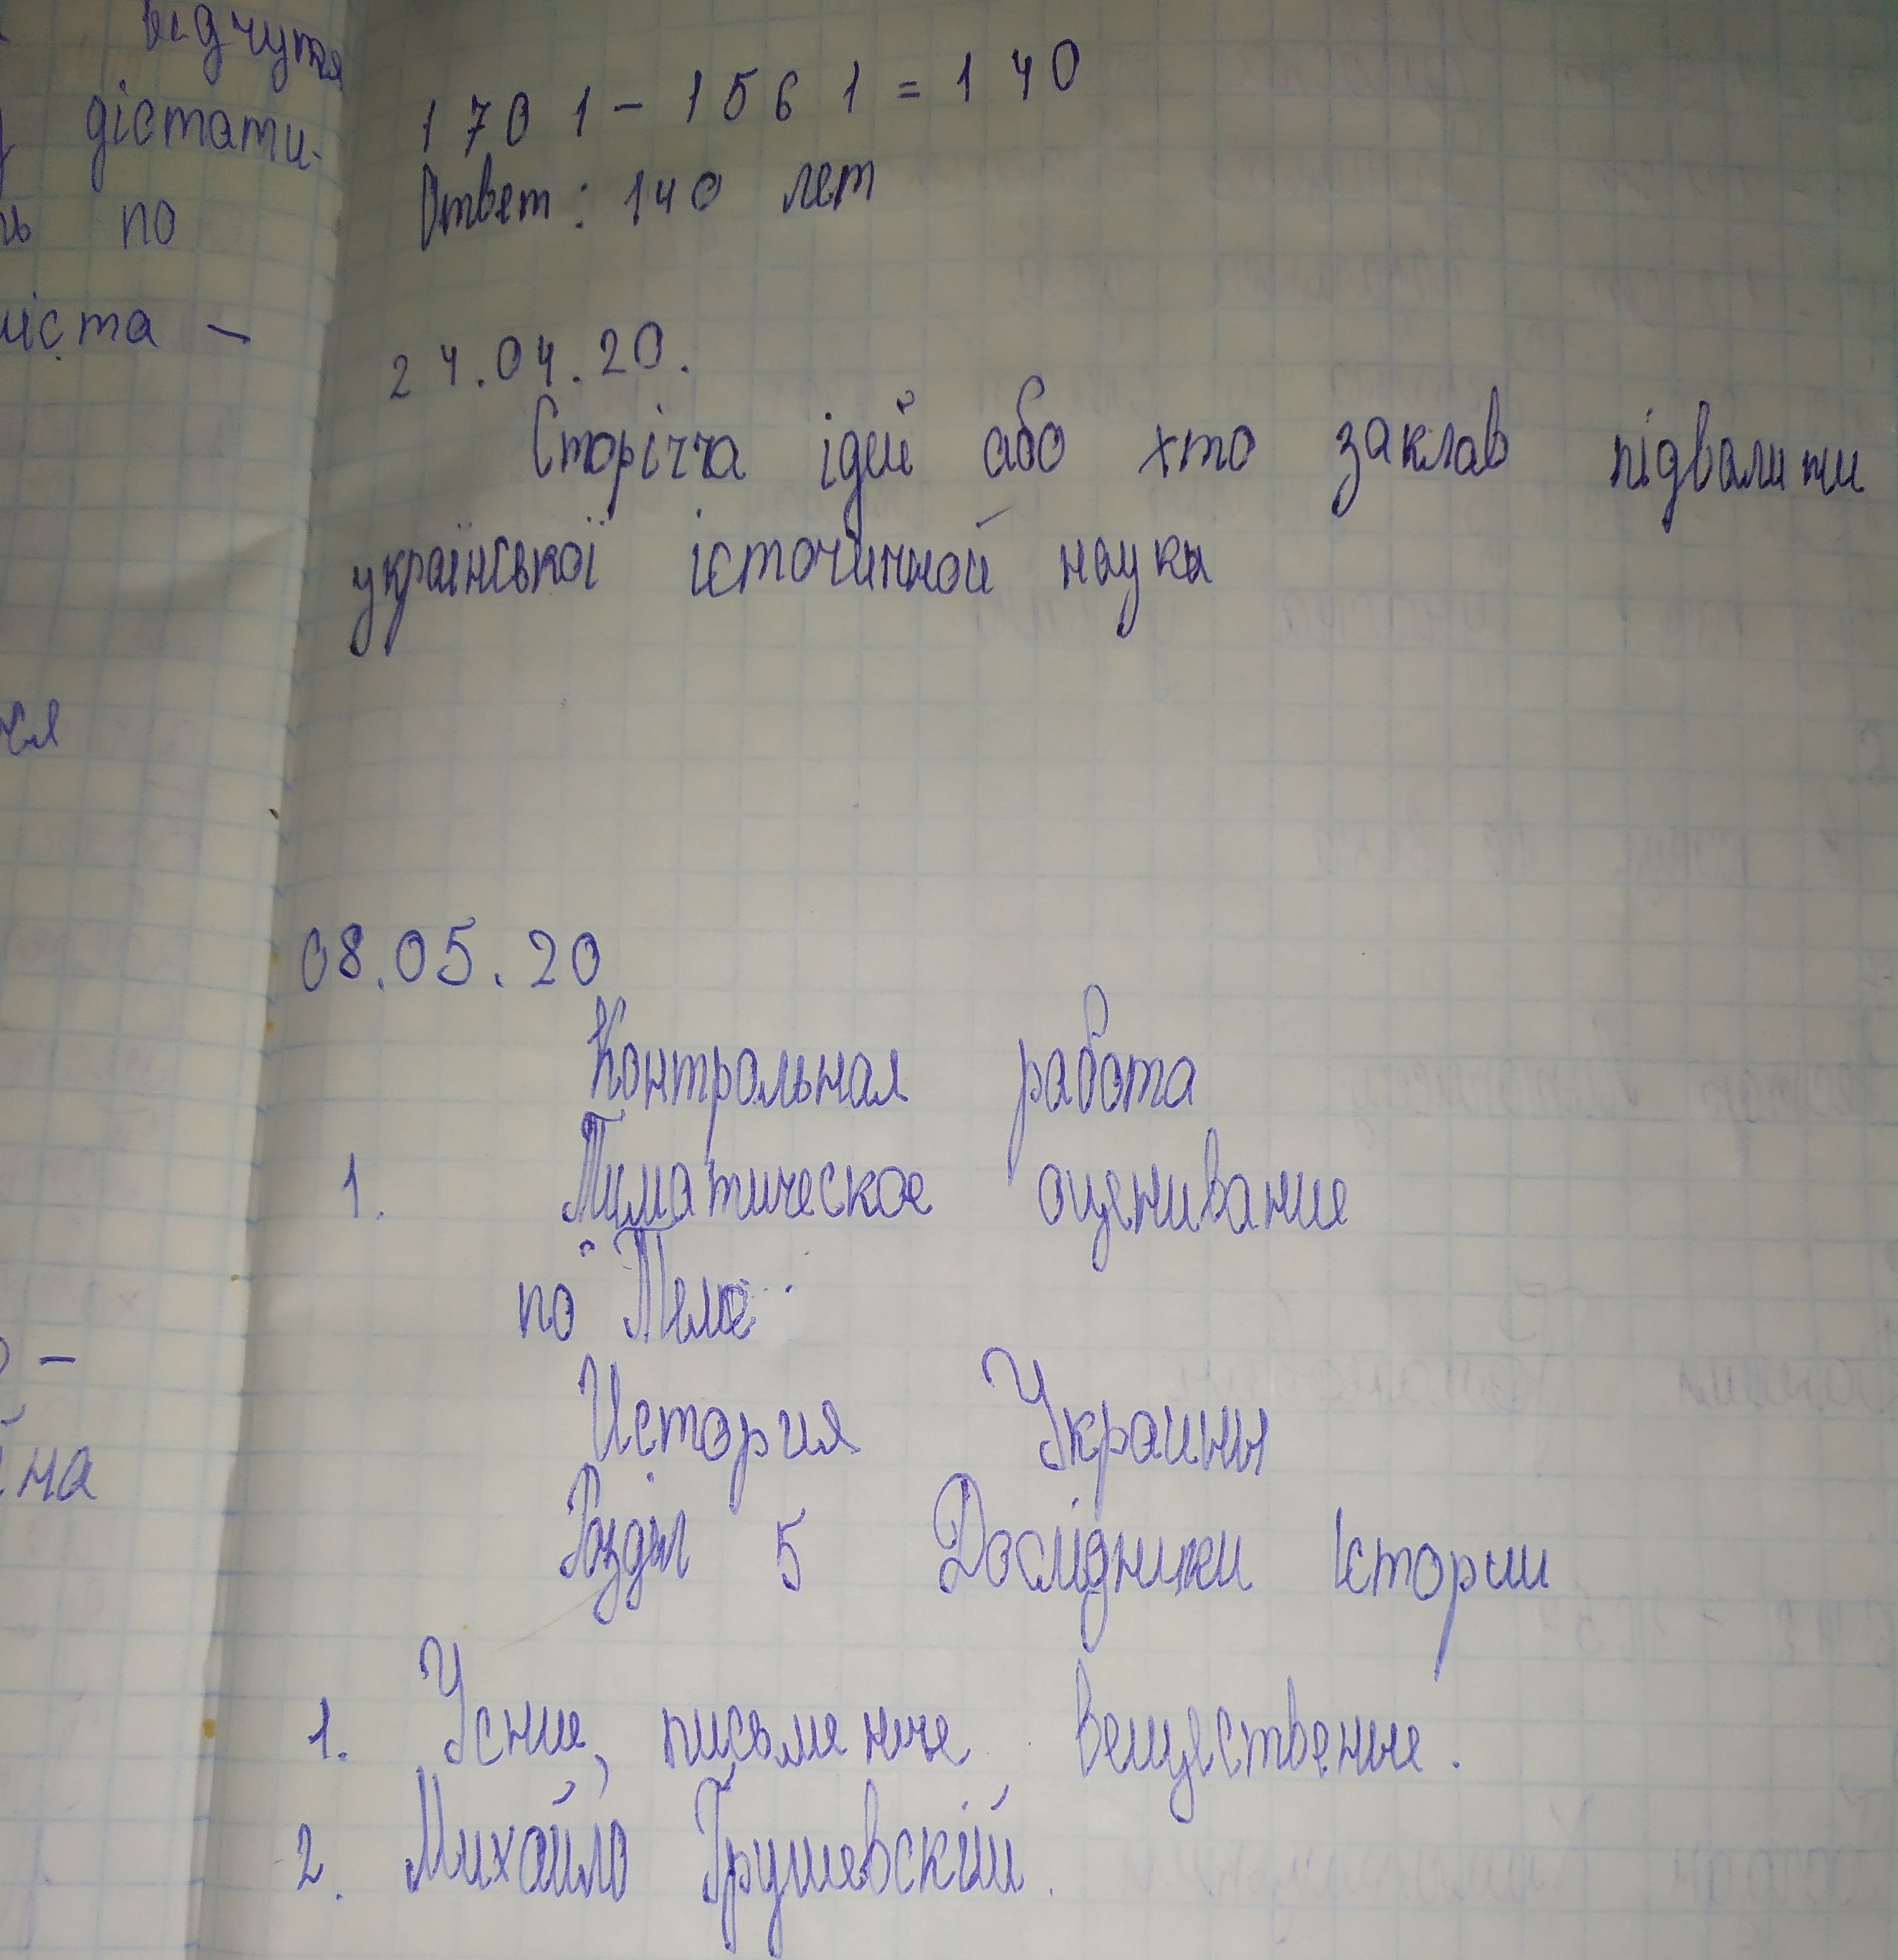 відчуття
дістати-
по
міста -
ся
-
на
1701 - 1561 = 140
Ответ: 140 лет
24.04.20.
Сторіччя ідей або хто заклав підвалини
української істочичной науки
08.05.20
Контрольная работа
1. Тиматическое оценивание
по Теме
История Украины
Розділ 5 Дослідники Істории
1. Усние, письменние вещественние.
2. Михайло Грушевскій.